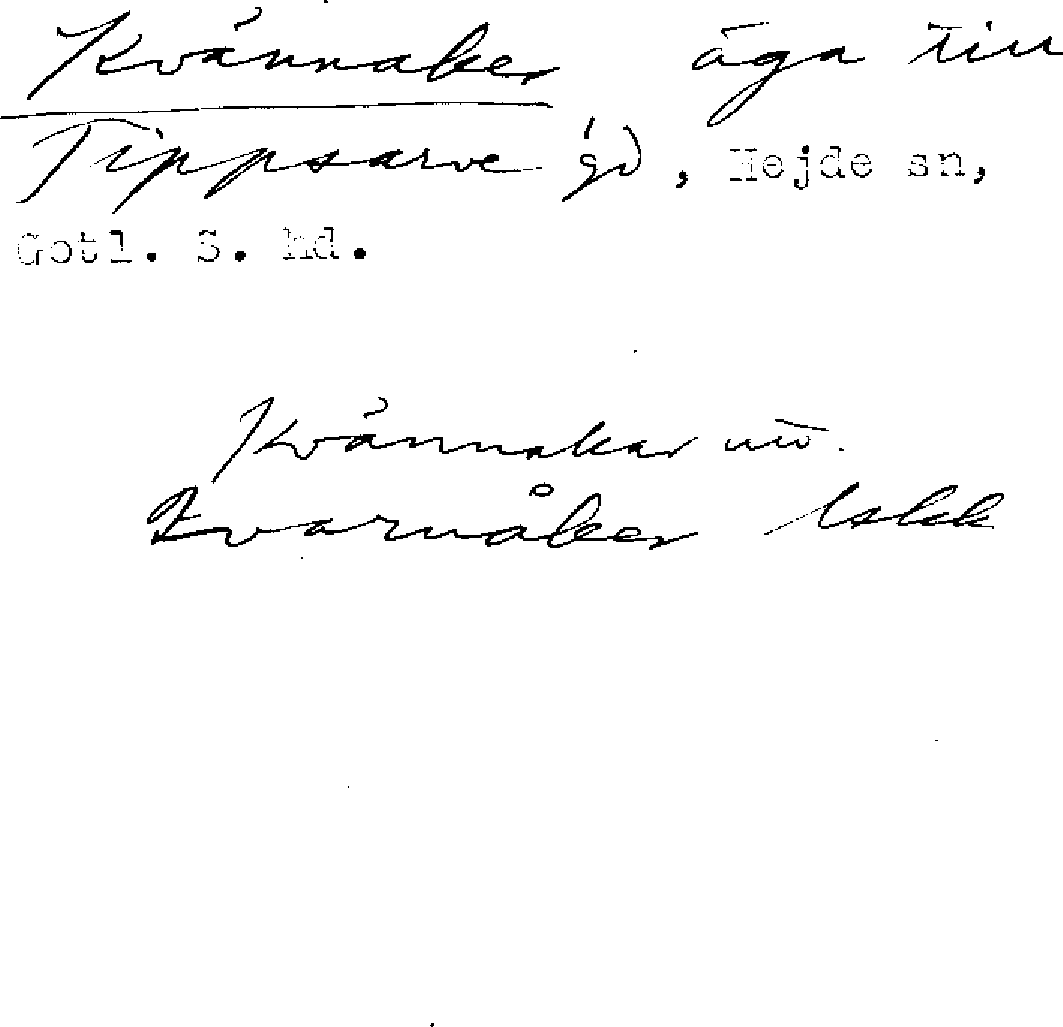 Kvännaker äga till
Tippsarve gd, Hejde sn,
Gotl. S. hd.
Kvännakar utt.
Kvarnåker